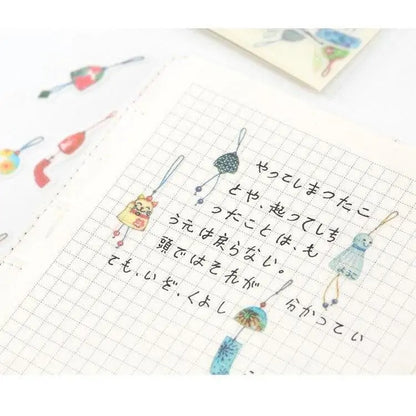 やってしまったこ
とや、起ってしち
ったことは、も
う元は戻らない。
頭ではそれが
分かってい
ても、いざ、くよし